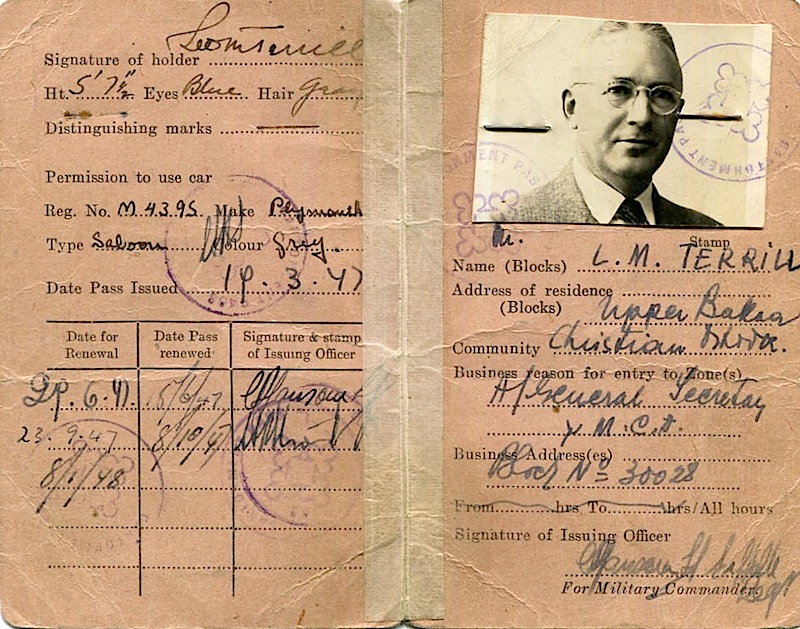 Signature of holder
Ht. 5' 7½" Eyes Blue Hair Gray
Distinguishing marks
Permission to use car
Reg. No. M.4395 Make Plymouth
Type Saloon Colour Grey.
Date Pass Issued 19.3.47
Date for Renewal
Date Pass renewed
Signature & stamp of Issuing Officer
29.6.47. 15/6/47
23.9.47 8/10/47
8/1/48
Stamp
Mr.
Name (Blocks) L. M. TERRILL
Address of residence
(Blocks) Upper Bakaa
Community Christian
Business reason for entry to Zone(s)
A/General Secretary
Y.M.C.A.
Business Address(es)
Block No 30028
From hrs To hrs/All hours
Signature of Issuing Officer
For Military Commander.